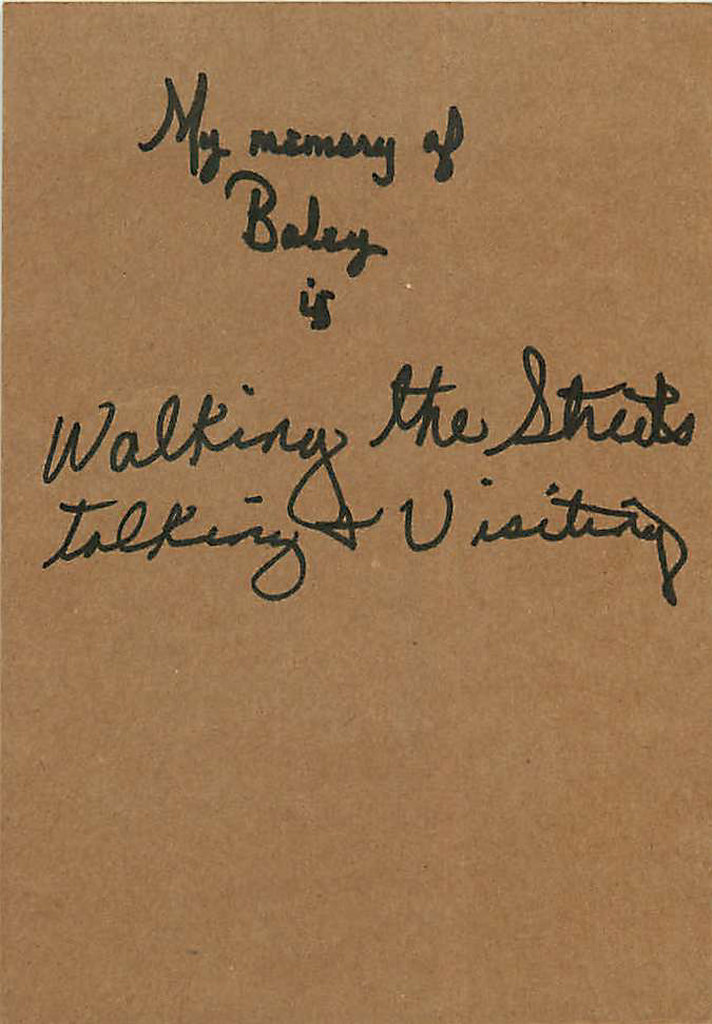 My memory of
Boley
is
Walking the Streets
talking & Visiting